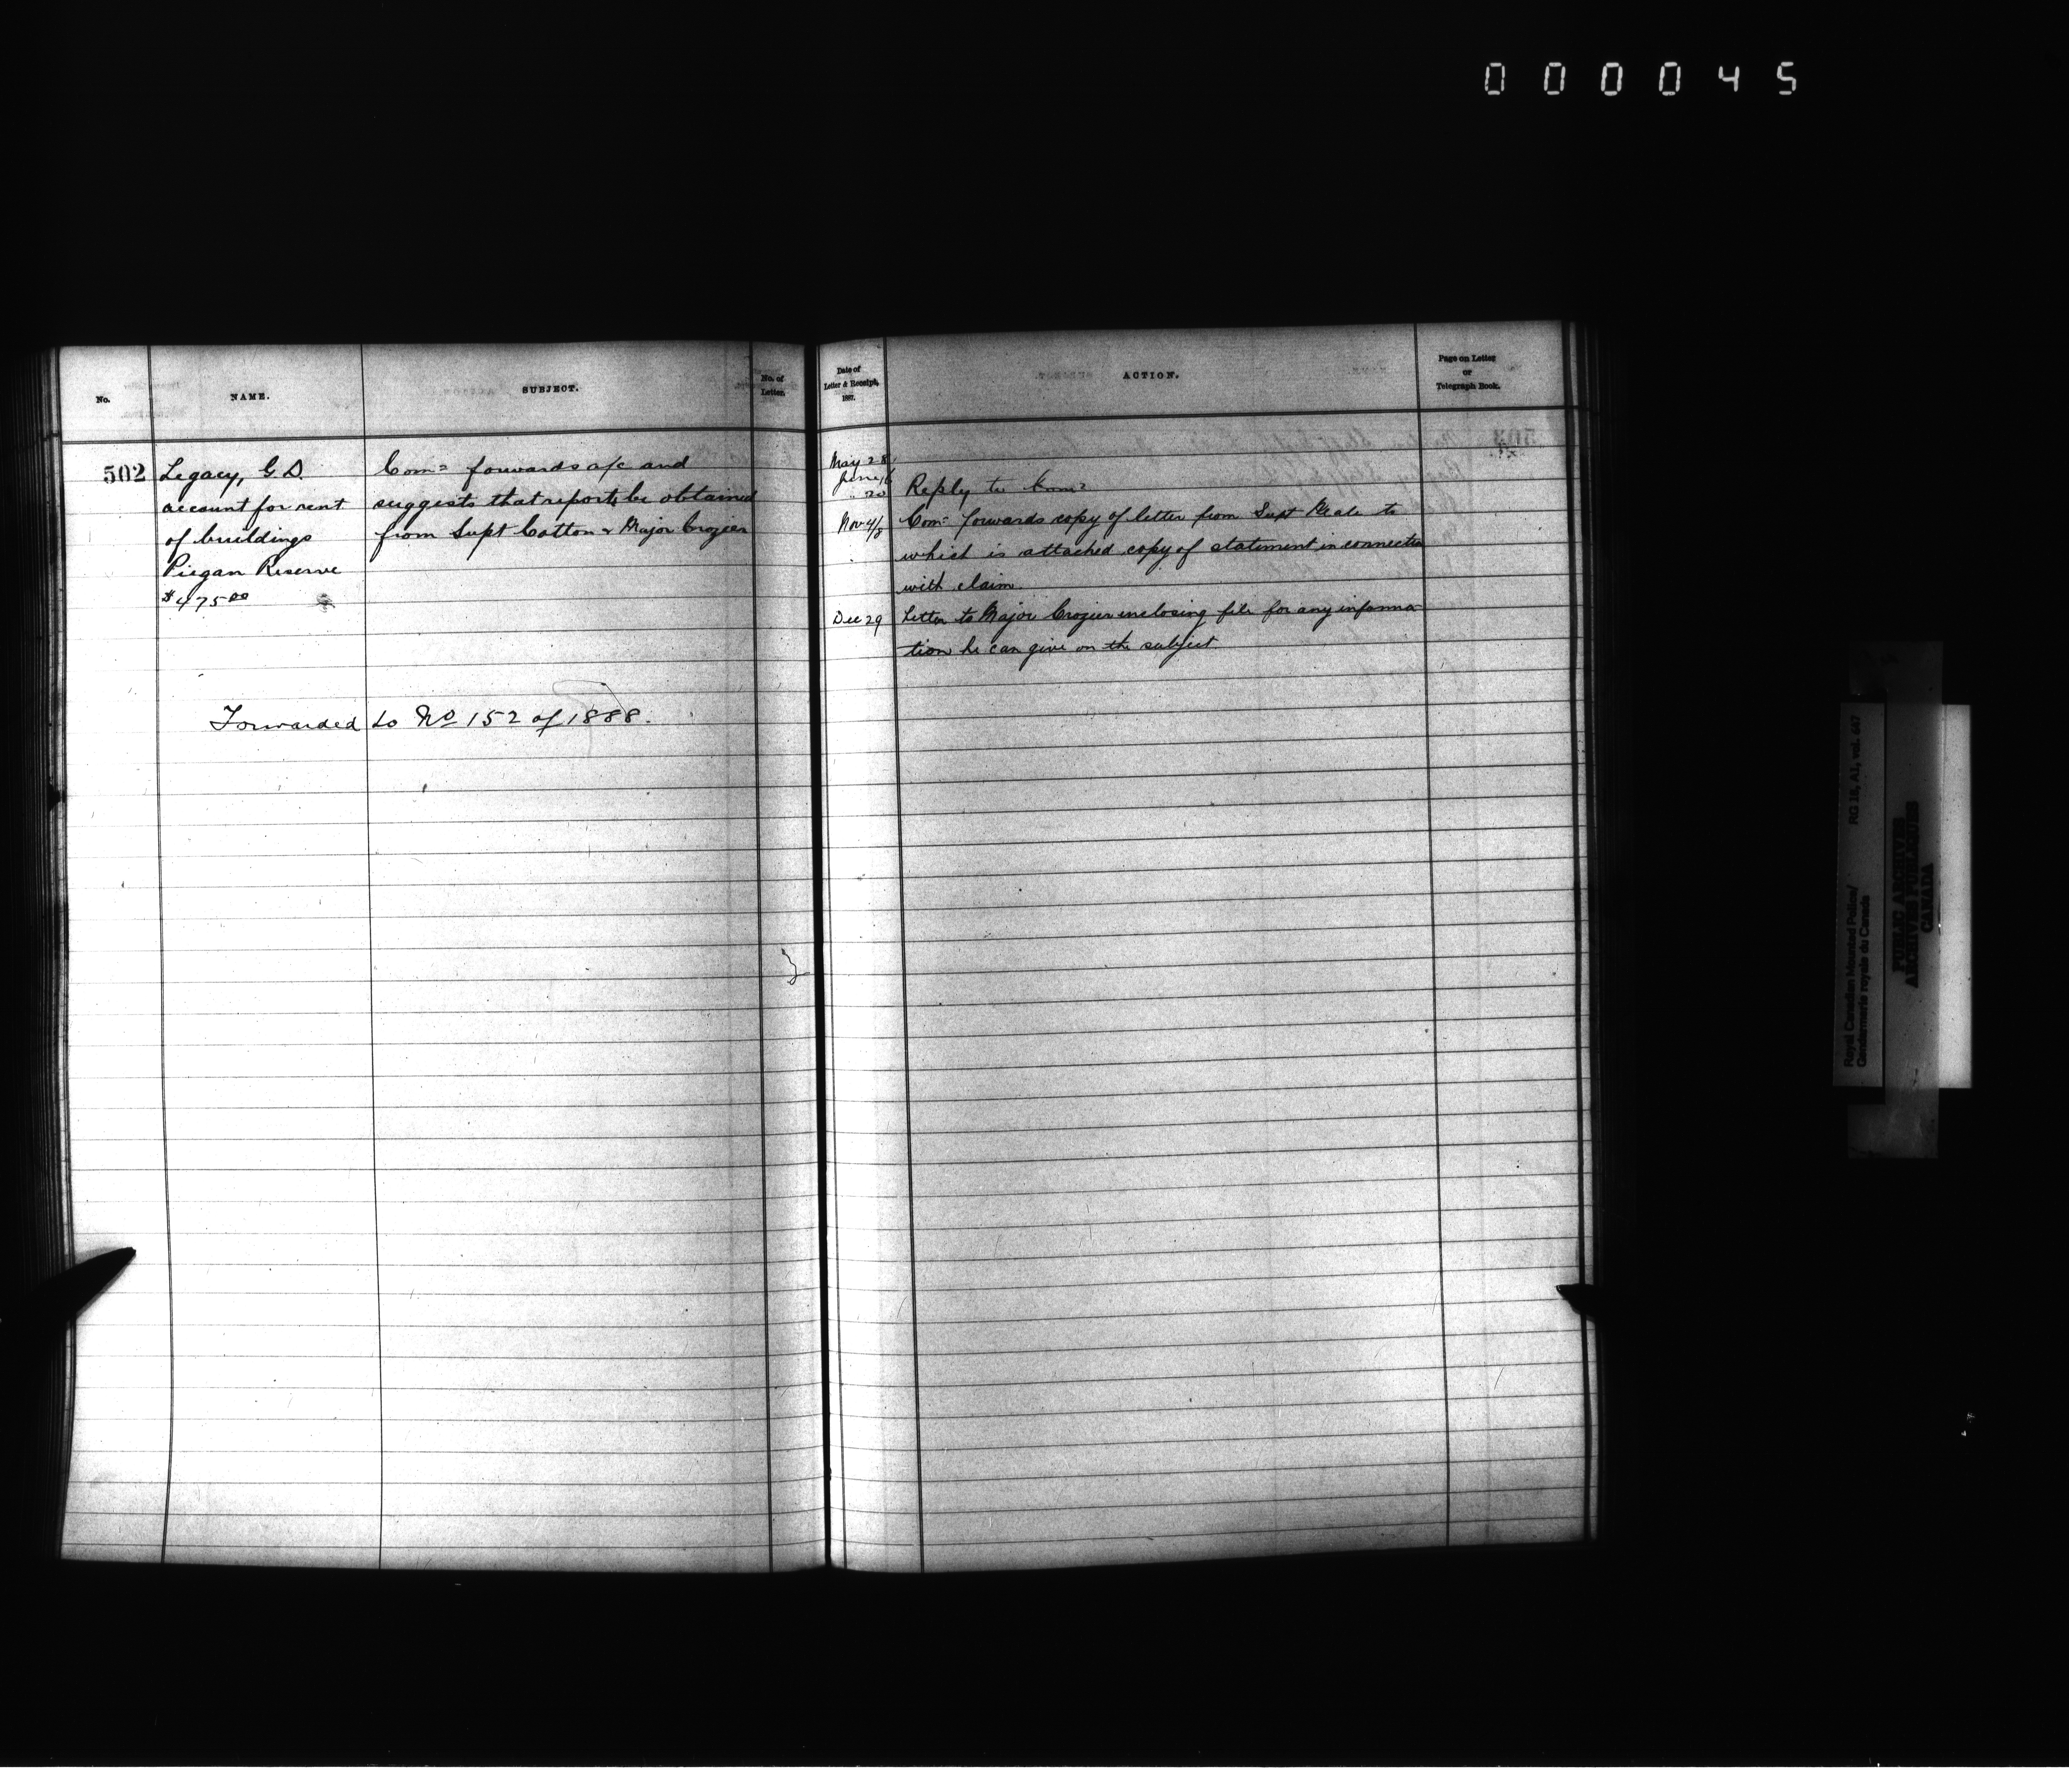 000045
No.
NAME.
SUBJECT.
No. of
Letter.
502
Legacy, G. D.
account for rent
of buildings
Piegan Reserve
$475.00
Comr forwards a/c and
suggests that reports be obtained
from Supt Cotton & Major Crozier
Forwarded to No 152 of 1888.
Date of
Letter & Receipt.
1887.
ACTION.
Page on Letter
or
Telegraph Book.
May 28
June 1/6
" 20 Reply to Comr
Nov 4/8 Comr forwards copy of letter from Supt Neale to
which is attached copy of statement in connection
with claim
Dec 29 Letter to Major Crozier inclosing file for any informa-
tion he can give on the subject.
Royal Canadian Mounted Police/
Gendarmerie royale du Canada
RG 18, A1, vol. 647
PUBLIC ARCHIVES
ARCHIVES PUBLIQUES
CANADA